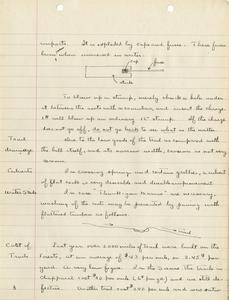 complete. It is exploded by caps and fuses. These fuses
burn when immersed in water.
cap
fuse
stick
To blow up a stump, merely chuck a hole under
it between the roots with a crowbar, and insert the charge.
1# will blow up an ordinary 15" stump. If the charge
does not go off, do not go back to see what is the matter.
Trail
drainage
Due to the low grade of the trail as compared with
the hill itself, and its narrow width, erosion is not very
severe.
Culverts
In crossing springy and sodden gullies, a culvert
of flat rocks is very desirable and
Water Steps
In case "Thank-you-Marms" are necessary
washing of the rock may be prevented by paving with
flattened timber as follows.
trail
Cost of
Trails
Last year over 2,000 miles of trail were built on the
Forests, at an average of $43 per mile, or 2.45¢ per
yard. A very low figure. In the Sierras the trails in
chapparal cost $90 per mile (5¢ per yd) and are still de-
fective. Another trail cost $240 per mile and was entire
8